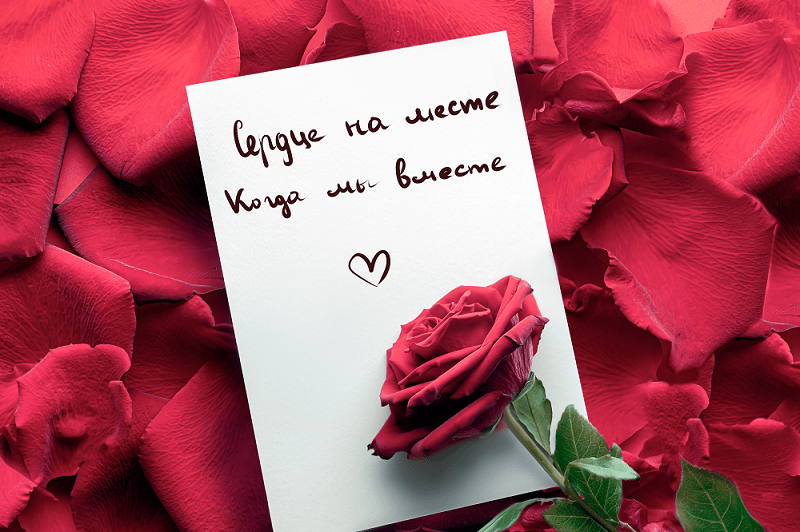 Сердце на месте
Когда мы вместе